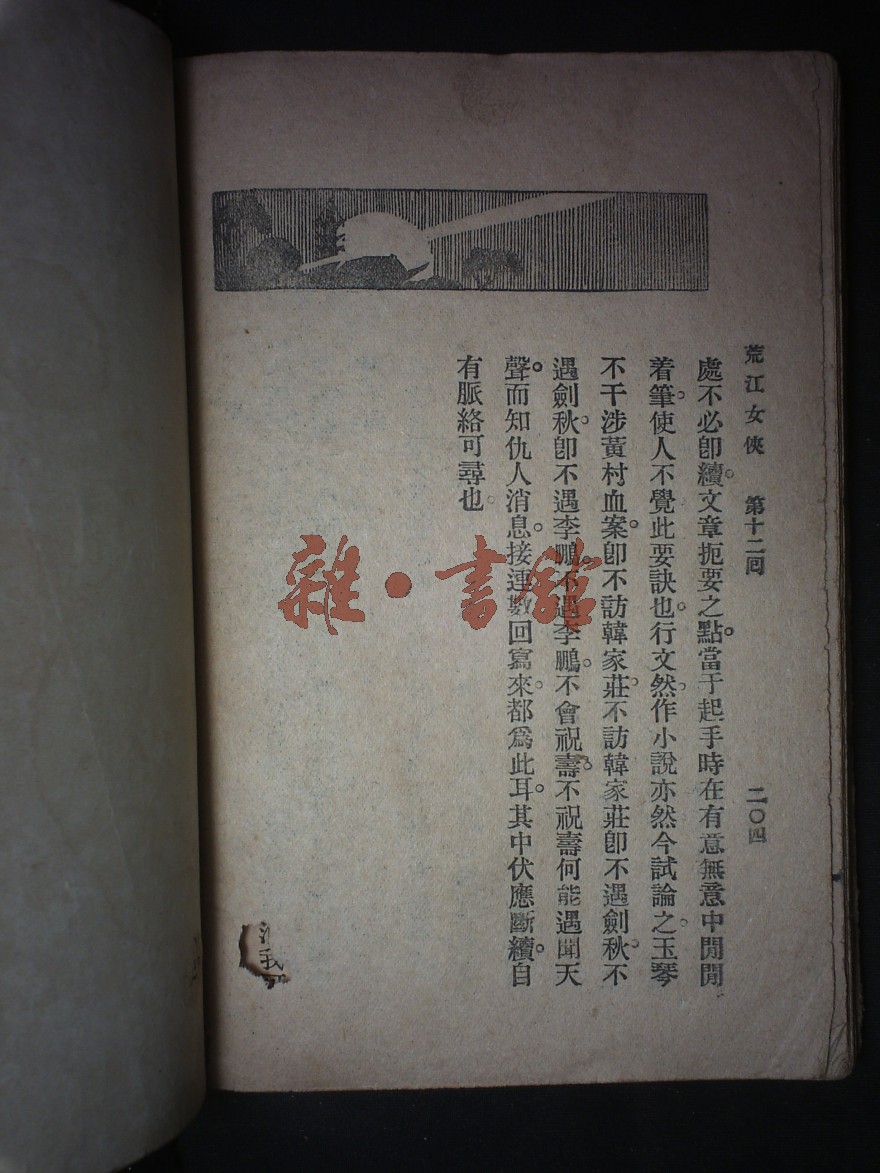 荒江女俠　第十二回　二〇四
處不必卽續。文章扼要之點。當于起手時在有意無意中閒閒
着筆。使人不覺此要訣也。行文然。作小說亦然今試論之。玉琴
不干涉黃村血案。卽不訪韓家莊。不訪韓家莊卽不遇劍秋。不
遇劍秋。卽不遇李鵬。不遇李鵬。不會祝壽。不祝壽何能遇聞天
聲。而知仇人消息。接連數回寫來。都爲此耳。其中伏應斷續。自
有脈絡可尋也。
雜·書館
我